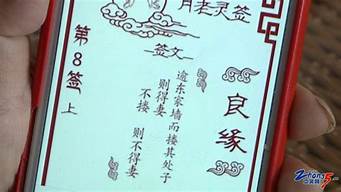 月老灵签
良缘
签文
逾东家墙而搂其处子
则得妻
不搂
则不得妻
第8签 上